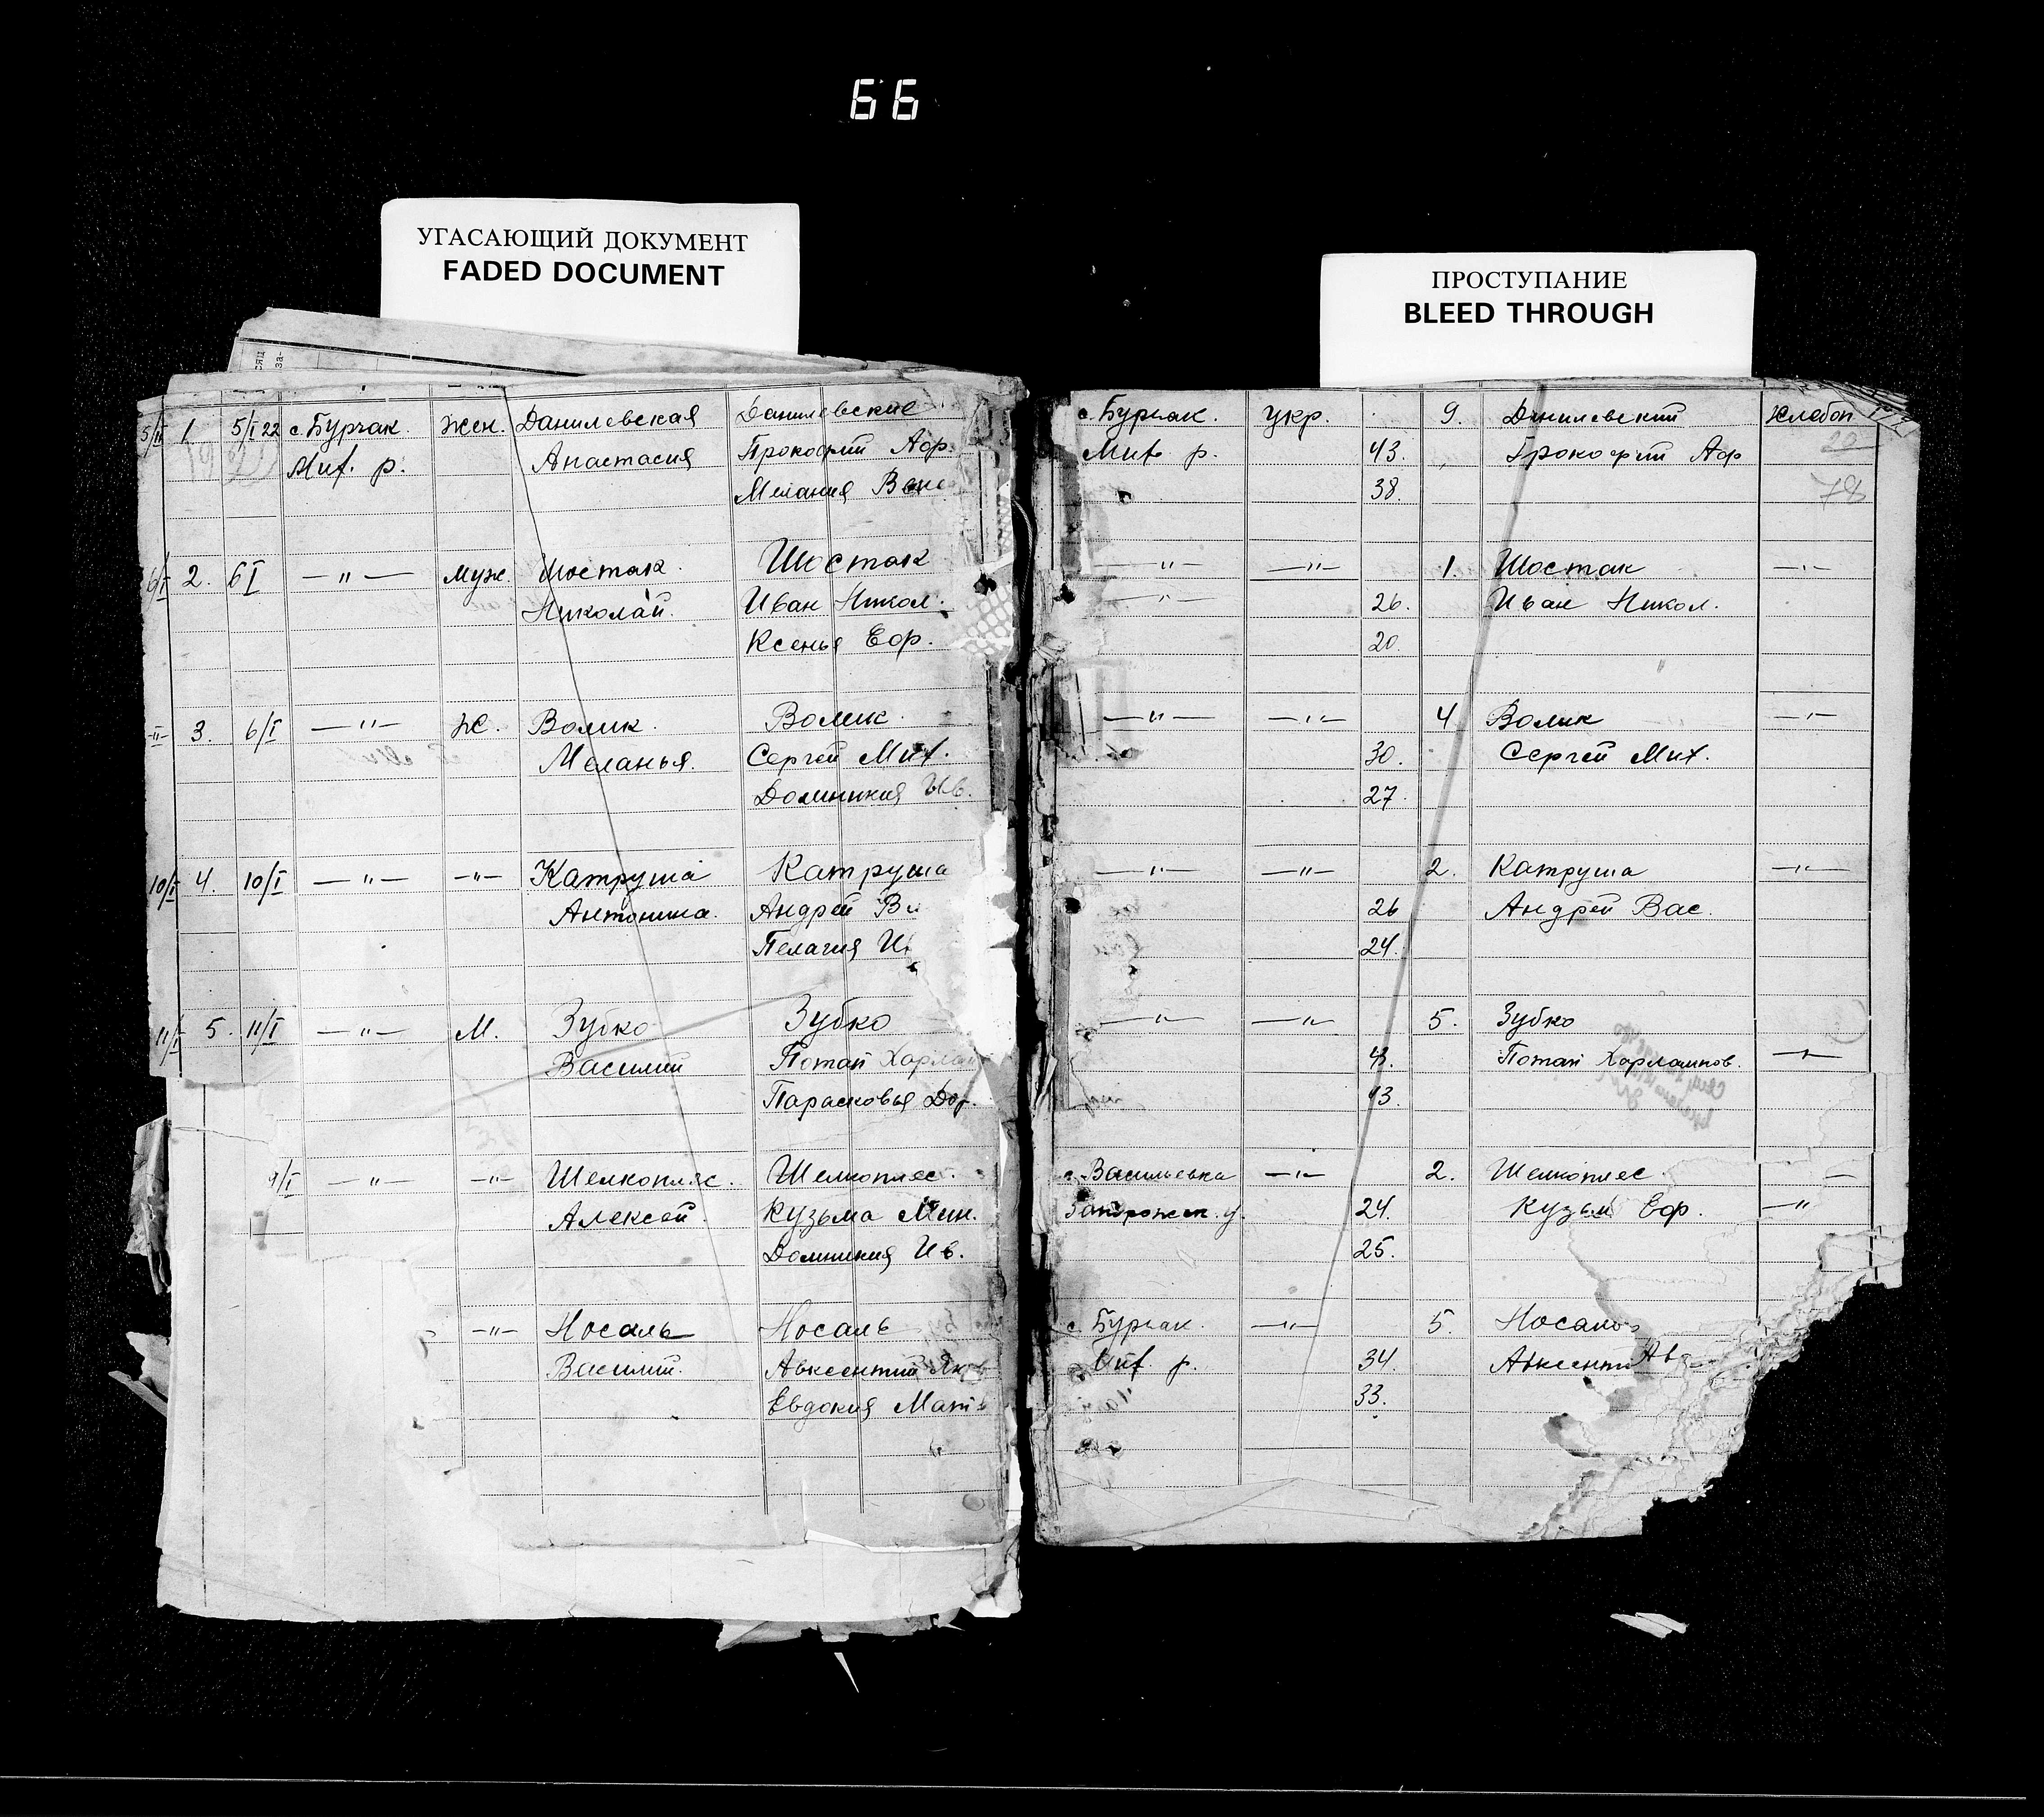 66
УГАСАЮЩИЙ ДОКУМЕНТ
FADED DOCUMENT
ПРОСТУПАНИЕ
BLEED THROUGH
сяц
за-
5/II 1 5/I 22 с. Бурчак. жен. Данилевская Данилевские
Мих. р. Анастасия Прокофий Аф.
Мелания
6/I 2. 6 I — " — муж. Шостак. Шостак
Николай. Иван Никол.
Ксенья Еф.
— " — 3. 6/I — " — Ж. Волик. Волик.
Меланья. Сергей Мих.
Доминикия Ив.
10/I 4. 10/I — " — — " — Катруша Катруша
Антонина. Андрей
Пелагия
11/I 5. 11/I — " — М. Зубко Зубко
Василий Потап Харлам
Парасковья
— " — — " — Шелкопляс. Шелкопляс.
Алексей. Кузьма
Доминикия Ив.
— " — Носаль Носаль
Василий. Авксентий Як
Евдокия Матв
с. Бурчак. укр. 9. Данилевский хлебоп
Мих. р. 43. Прокофий Аф
38. 78
— " — — " — 1. Шостак — " —
— " — 26. Иван Никол.
20.
— " — — " — 4. Волик — " —
30. Сергей Мих.
27.
— " — — " — 2. Катруша — " —
26 Андрей Вас.
24.
— " — — " — 5. Зубко
43. Потап Харлампов. — " —
43.
с. Васильевка — " — 2. Шелкопляс —
Запорожск. у. 24. Кузьма Еф. — "
25.
с. Бурчак. — " — 5.
Мих. р. 34. Авксенти
33.